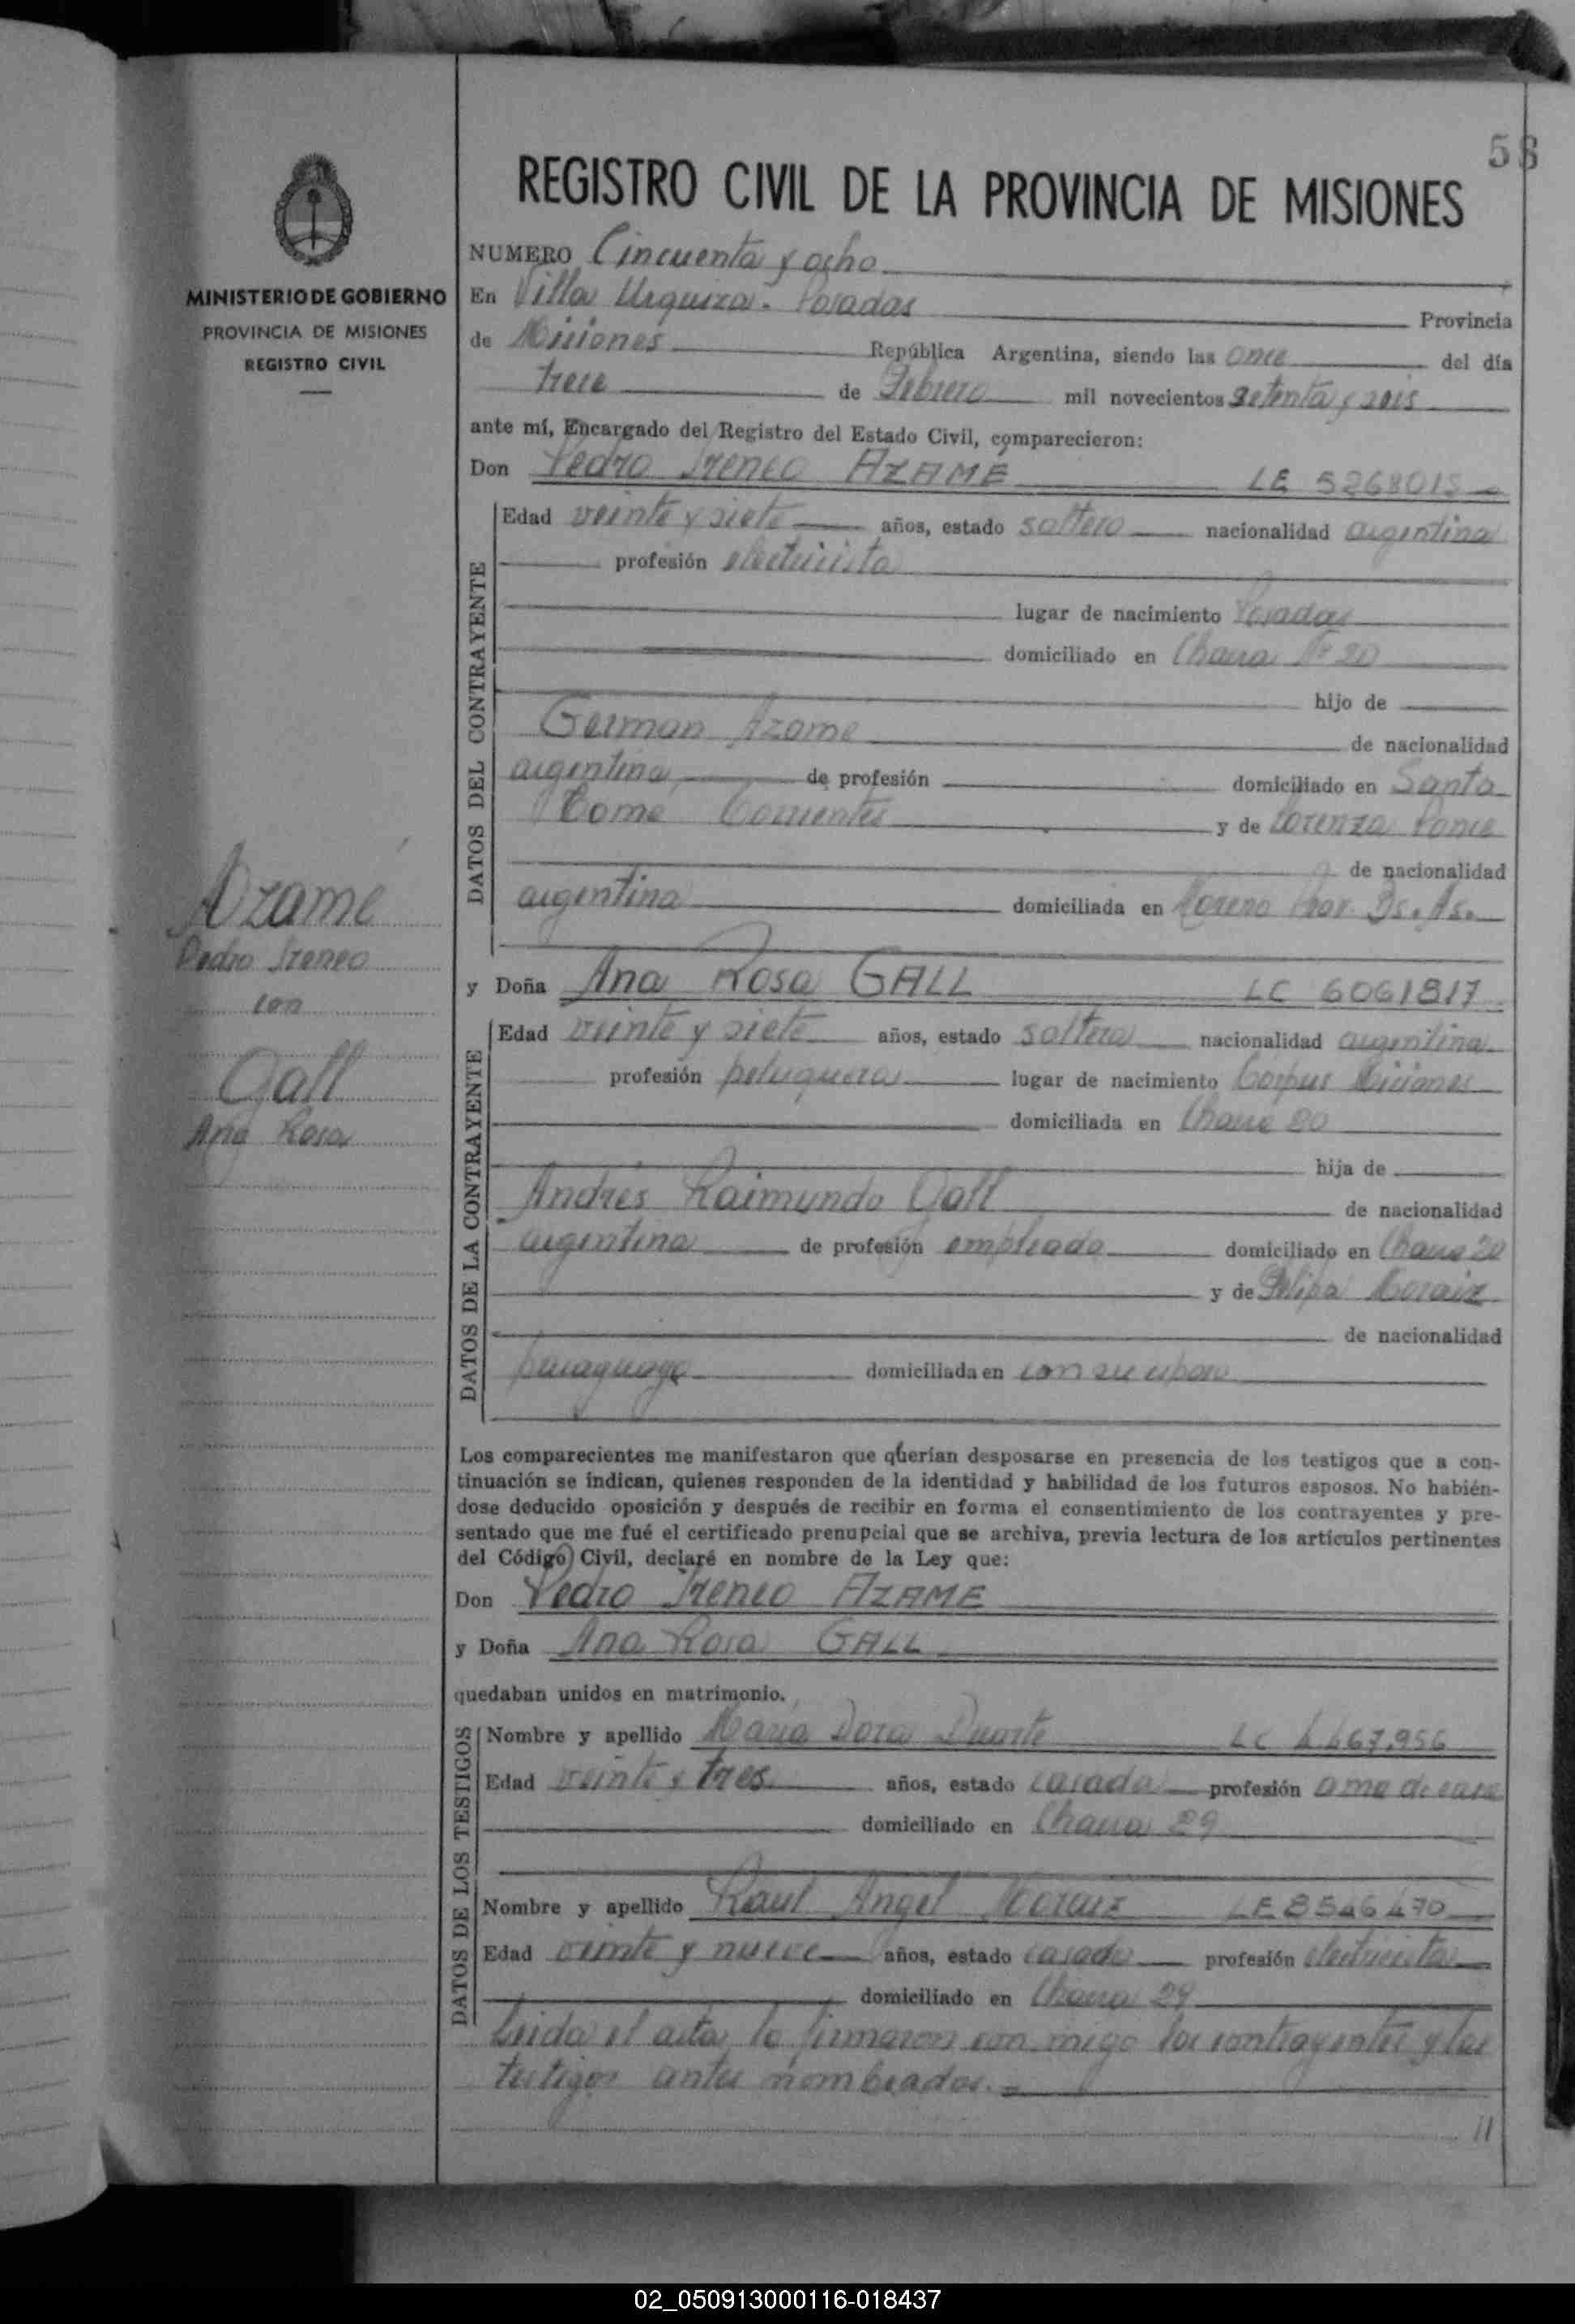 58
REGISTRO CIVIL DE LA PROVINCIA DE MISIONES
MINISTERIO DE GOBIERNO
PROVINCIA DE MISIONES
REGISTRO CIVIL
NUMERO Cincuenta y ocho
En Villa Urquiza. Posadas Provincia
de Misiones República Argentina, siendo las once del día
trece de Febrero mil novecientos setenta y seis
ante mí, Encargado del Registro del Estado Civil, comparecieron:
Don Pedro Ireneo AZAME LE 5268015
DATOS DEL CONTRAYENTE
Edad veinte y siete años, estado soltero nacionalidad argentina
profesión electricista
lugar de nacimiento Posadas
domiciliado en Chacra Nº 20
hijo de
German Azame de nacionalidad
argentina de profesión domiciliado en Santo
Tome Corrientes y de Lorenza Ponce
de nacionalidad
argentina domiciliada en Moreno Prov. Bs. As.
Azame
Pedro Ireneo
con
Gall
Ana Rosa
y Doña Ana Rosa GALL LC 6061817
DATOS DE LA CONTRAYENTE
Edad veinte y siete años, estado soltera nacionalidad argentina
profesión peluquera lugar de nacimiento Corpus Misiones
domiciliada en Chacra 20
hija de
Andrés Raimundo Gall de nacionalidad
argentina de profesión empleado domiciliado en Chacra 20
y de Felipa Moraiz
de nacionalidad
paraguaya domiciliada en con su esposo
Los comparecientes me manifestaron que querían desposarse en presencia de los testigos que a con-
tinuación se indican, quienes responden de la identidad y habilidad de los futuros esposos. No habién-
dose deducido oposición y después de recibir en forma el consentimiento de los contrayentes y pre-
sentado que me fué el certificado prenupcial que se archiva, previa lectura de los artículos pertinentes
del Código Civil, declaré en nombre de la Ley que:
Don Pedro Ireneo AZAME
y Doña Ana Rosa GALL
quedaban unidos en matrimonio.
DATOS DE LOS TESTIGOS
Nombre y apellido Maria Dora Duarte LC 4.467.956
Edad veinte y tres años, estado casada profesión ama de casa
domiciliado en Chacra 29
Nombre y apellido Raul Angel Moraiz LE 8546470
Edad veinte y nueve años, estado casado profesión electricista
domiciliado en Chacra 29
Leida el acta la firmaron con migo los contrayentes y los
testigos antes nombrados.
02_050913000116-018437